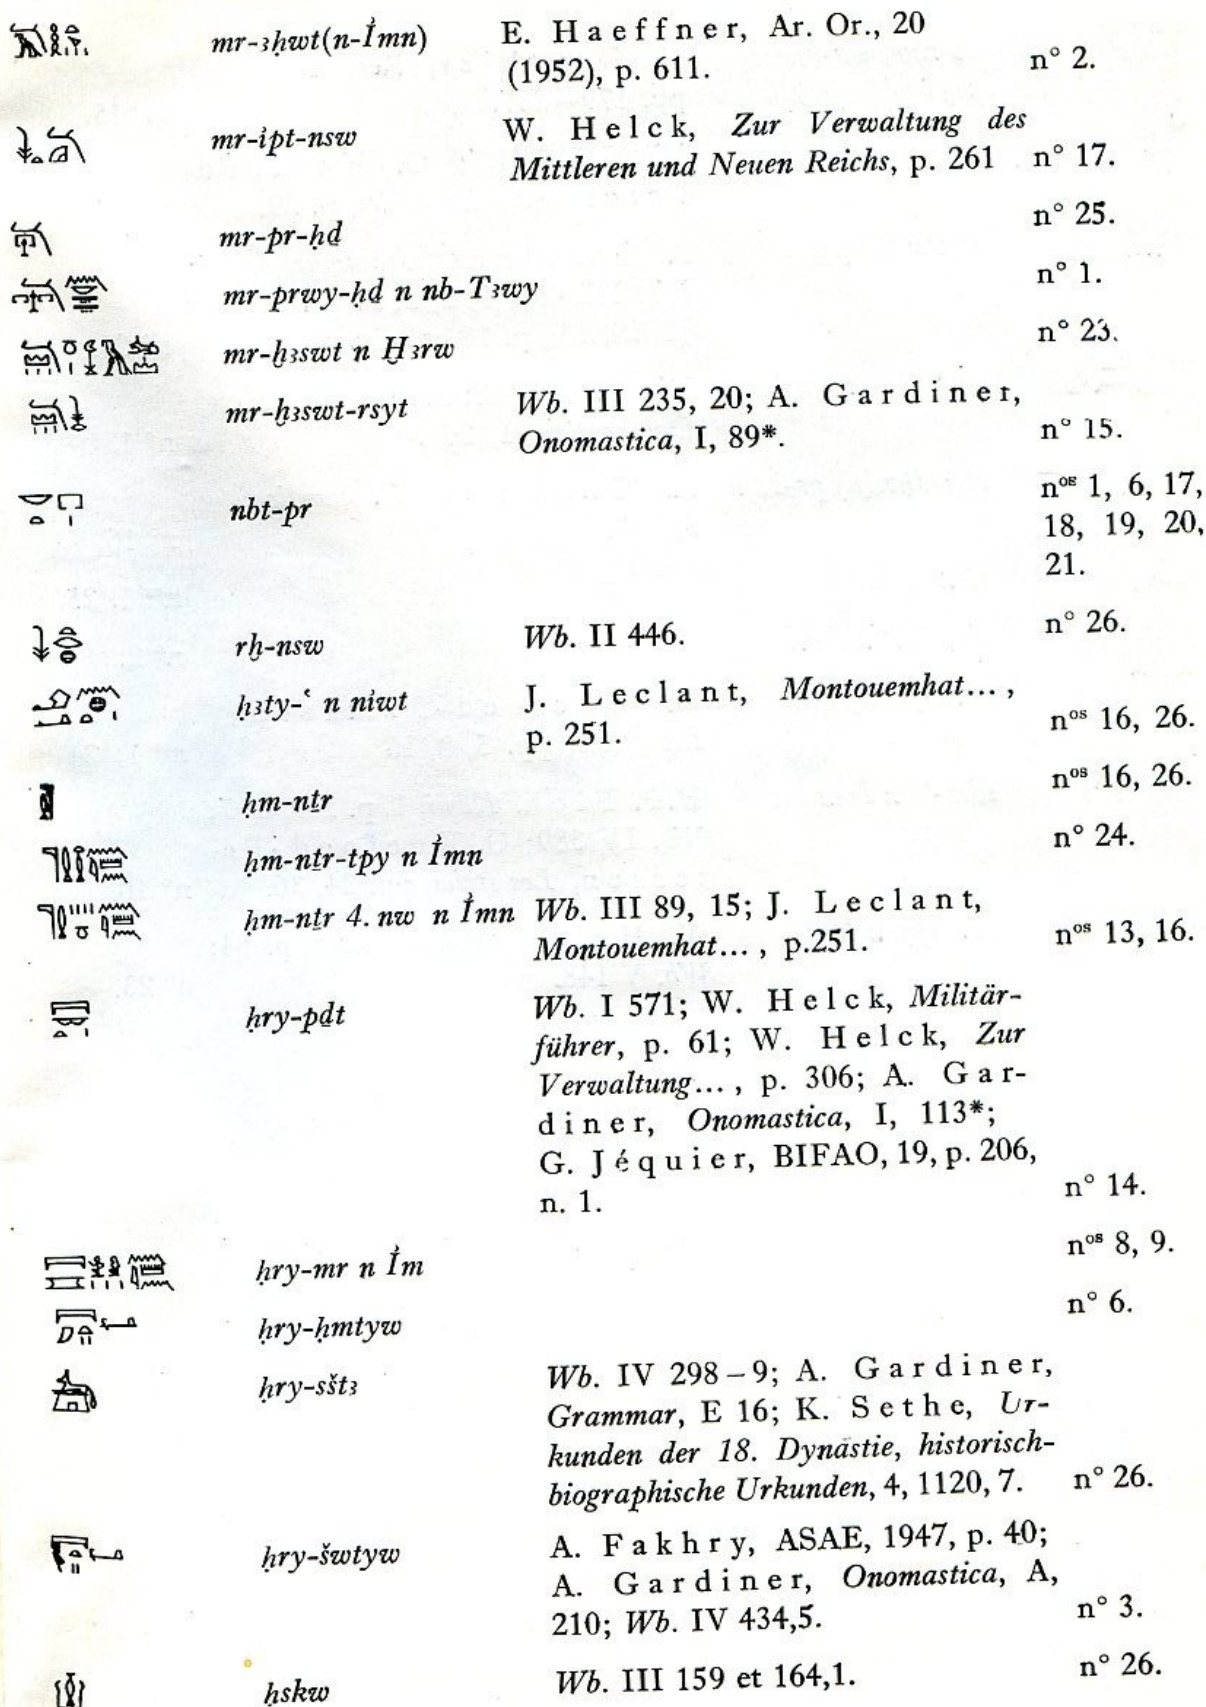 mr-ꜣḥwt(n-Ỉmn) E. Haeffner, Ar. Or., 20
(1952), p. 611. n° 2.
mr-ỉpt-nsw W. Helck, Zur Verwaltung des
Mittleren und Neuen Reichs, p. 261 n° 17.
mr-pr-ḥḏ n° 25.
mr-prwy-ḥḏ n nb-Tꜣwy n° 1.
mr-ḫꜣswt n Ḫꜣrw n° 23.
mr-ḫꜣswt-rsyt Wb. III 235, 20; A. Gardiner,
Onomastica, I, 89*. n° 15.
nbt-pr nos 1, 6, 17,
18, 19, 20,
21.
rḫ-nsw Wb. II 446. n° 26.
ḥꜣty-ꜥ n nỉwt J. Leclant, Montouemhat...,
p. 251. nos 16, 26.
ḥm-nṯr nos 16, 26.
ḥm-nṯr-tpy n Ỉmn n° 24.
ḥm-nṯr 4. nw n Ỉmn Wb. III 89, 15; J. Leclant,
Montouemhat..., p.251. nos 13, 16.
ḥry-pḏt Wb. I 571; W. Helck, Militär-
führer, p. 61; W. Helck, Zur
Verwaltung..., p. 306; A. Gar-
diner, Onomastica, I, 113*;
G. Jéquier, BIFAO, 19, p. 206,
n. 1. n° 14.
ḥry-mr n Ỉm nos 8, 9.
ḥry-ḥmtyw n° 6.
ḥry-sštꜣ Wb. IV 298–9; A. Gardiner,
Grammar, E 16; K. Sethe, Ur-
kunden der 18. Dynastie, historisch-
biographische Urkunden, 4, 1120, 7. n° 26.
ḥry-šwtyw A. Fakhry, ASAE, 1947, p. 40;
A. Gardiner, Onomastica, A,
210; Wb. IV 434,5. n° 3.
ḥskw Wb. III 159 et 164,1. n° 26.